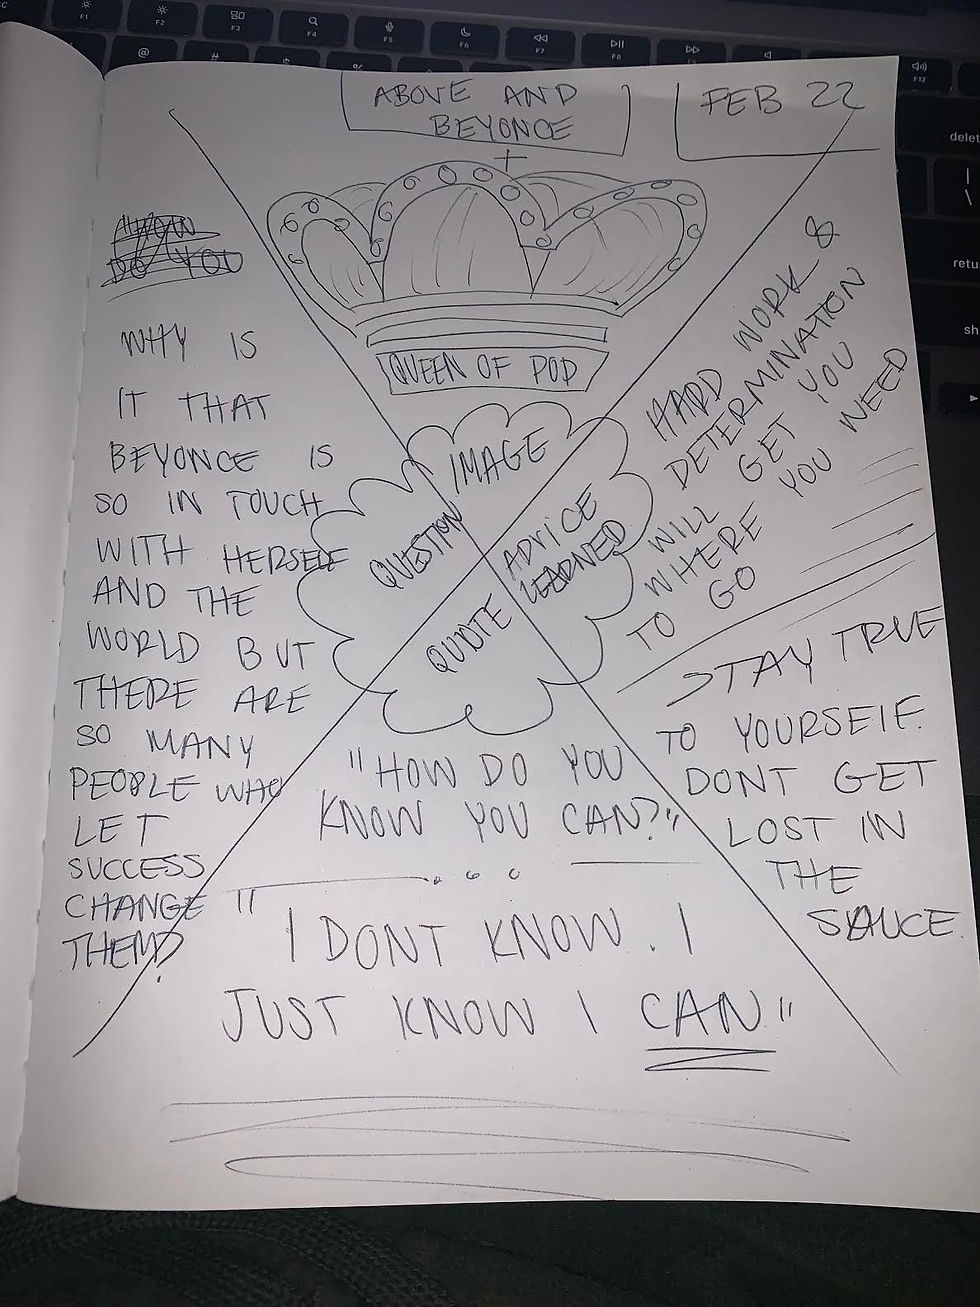 ABOVE AND
BEYONCE
FEB 22
QUEEN OF POP
IMAGE
QUESTION
ADVICE
LEARNED
QUOTE
"HOW
DO YOU
WHY IS
IT THAT
BEYONCE IS
SO IN TOUCH
WITH HERSELF
AND THE
WORLD BUT
THERE ARE
SO MANY
PEOPLE WHO
LET
SUCCESS
CHANGE
THEM?
HARD WORK &
DETERMINATION
WILL GET YOU
WHERE YOU NEED
TO GO
STAY TRUE
TO YOURSELF.
DONT GET
LOST IN
THE
SAUCE.
"HOW DO YOU
KNOW YOU CAN?"
...
"I DONT KNOW. I
JUST KNOW I CAN"
F1
F2
F3
F4
F5
F6
F7
F8
F9
F12
@
#
$
%
delet
|
\
retu
sh